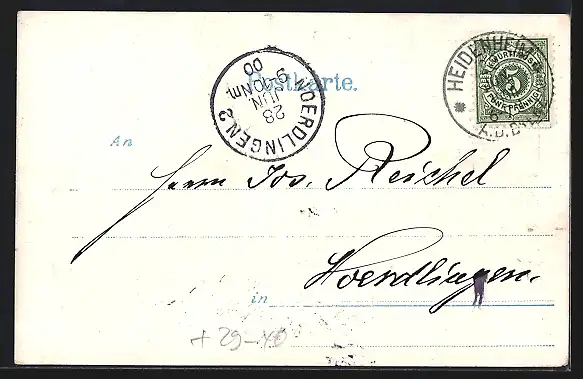 Postkarte.
NOERDLINGEN 2
28
JUN.
9-10 Nm.
00
HEIDENHEIM
A.D. BRENZ
5
FÜNF PFENNIG
An
Herrn Jos. Reichel
Noerdlingen.
in
+ 29-40